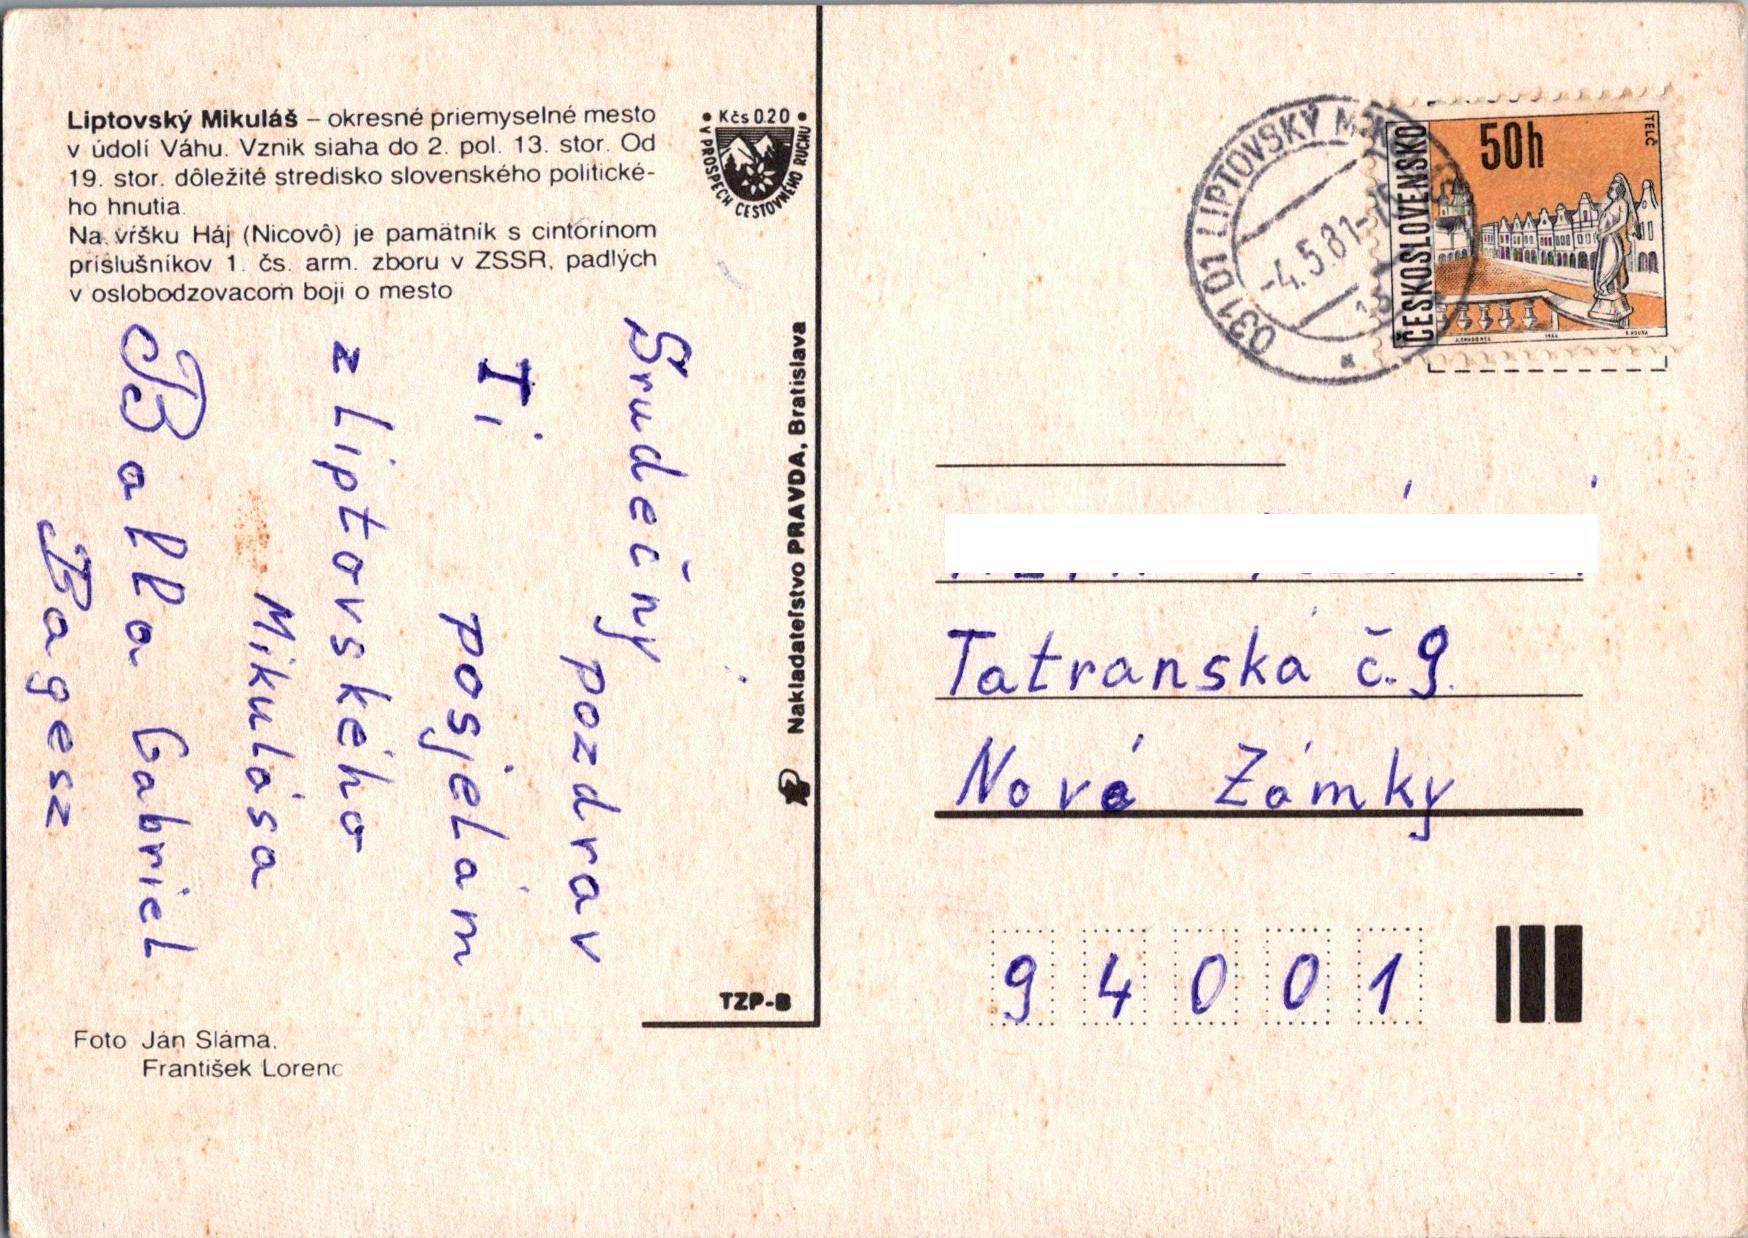 Liptovský Mikuláš – okresné priemyselné mesto
v údolí Váhu. Vznik siaha do 2. pol. 13. stor. Od
19. stor. dôležité stredisko slovenského politické-
ho hnutia.
Na vŕšku Háj (Nicovô) je pamätník s cintorínom
príslušníkov 1. čs. arm. zboru v ZSSR, padlých
v oslobodzovacom boji o mesto
• Kčs 0.20 •
V PROSPECH CESTOVNÉHO RUCHU
Srudečny
pozdrav
Ti
posjelám
z Liptovského
Mikulása
Balla Gabriel
Bagesz
Foto Ján Sláma,
František Lorenc
Nakladateľstvo PRAVDA, Bratislava
TZP-B
031 01 LIPTOVSKÝ
-4.5.81-
ČESKOSLOVENSKO
50h
TELČ
Tatranská č. 9.
Nové Zámky
94001